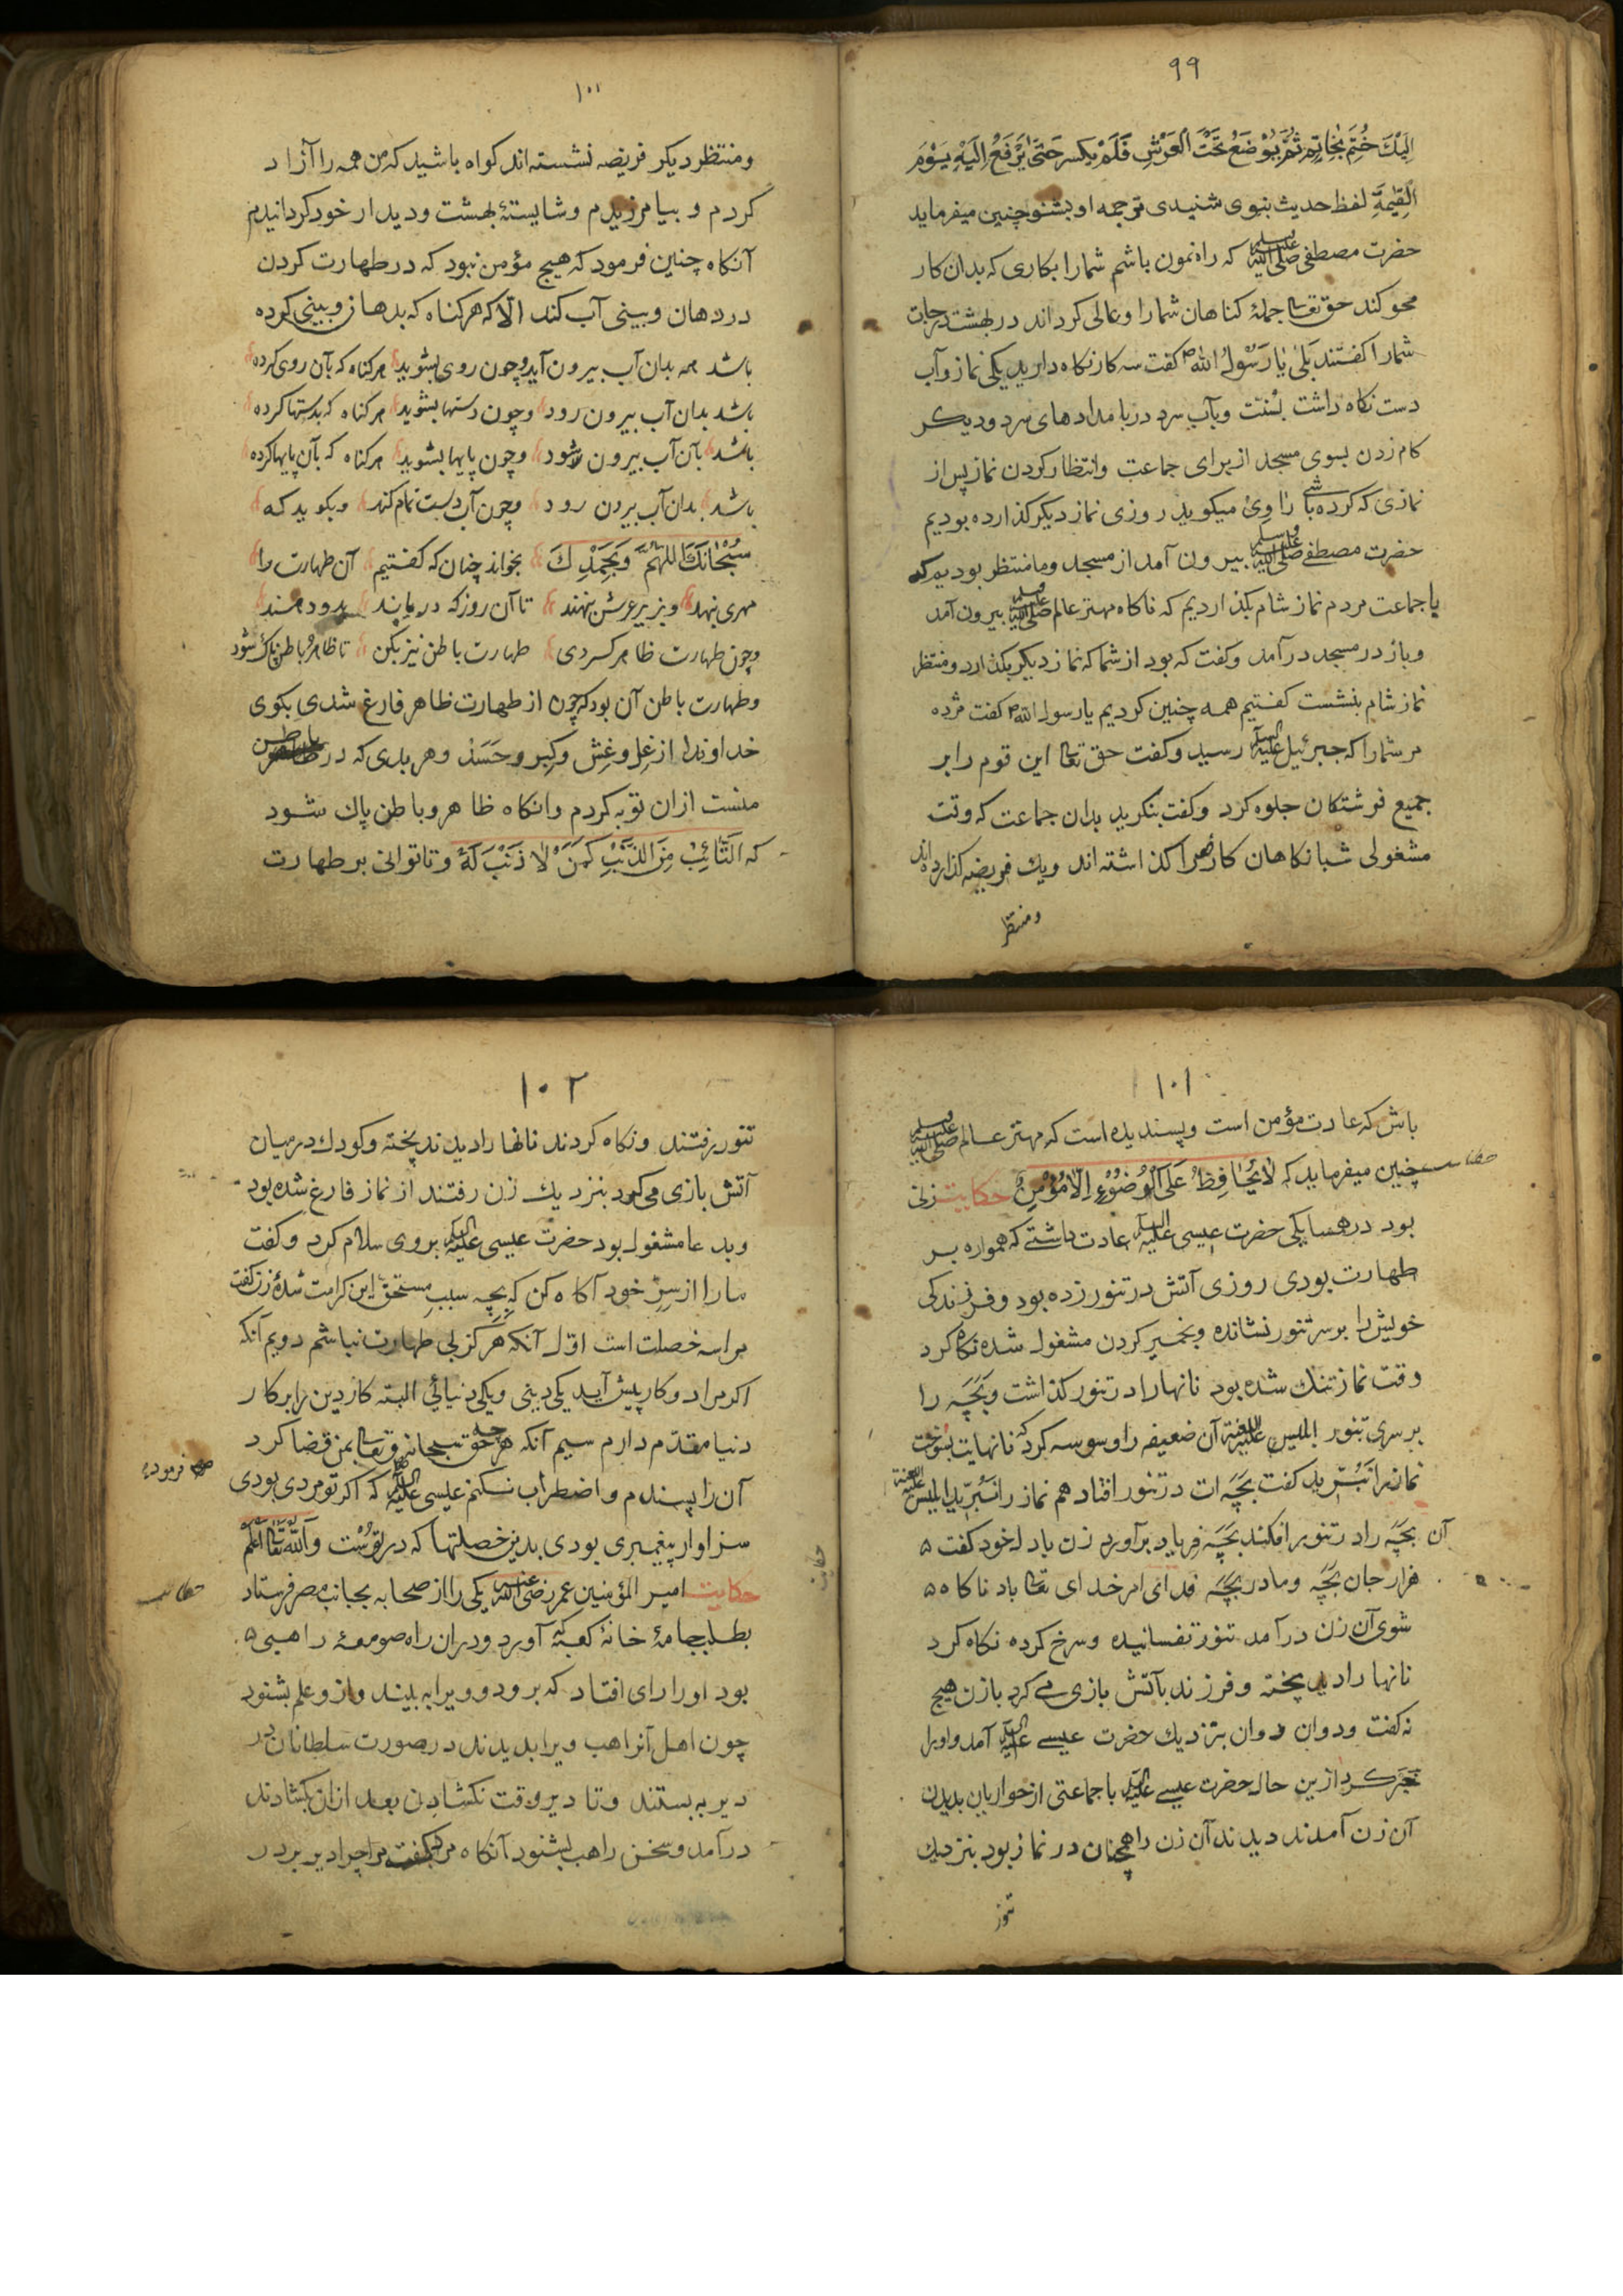 ۹۹
اِلَيْكَ خُتِمَ بِخَاتِمٍ ثُمَّ يُوْضَعُ تَحْتَ الْعَرْشِ فَلَمْ يكسر حَتّٰى يُرْفَعُ اِلَيْهِ يَوْمَ
الْقِيٰمَةِ لفظ حديث بنوی شنيدی ترجمه او بشنو چنين ميفرمايد
حضرت مصطفی صلی الله عليه وسلم که راه نمون باشم شمارا بکاری که بدان کار
محو کند حق تعا جملۀ کناهان شمارا و عالی کرداند در بهشت درجات
شمارا کفتند بَلٰی يٰا رَسُوْلَ الله کفت سه کار نکاه داريد يکی نماز وآب
دست نکاه داشت بسُنّت وبآب سرد در بامدادهای سرد وديکر
کام زدن بسوی مسجد از برای جماعت وانتظار کردن نماز پس از
نمازی که کرده باشی رٰاوِی ميکويد روزی نماز ديکر کذارده بوديم
حضرت مصطفے صلی الله عليه وسلم بيرون آمد از مسجد وما منتظر بوديم که
باجماعت مردم نماز شام بکذارديم که ناکاه مهتر عالم صلی الله عليه وسلم بيرون آمد
وباز در مسجد درآمد وکفت که بود از شما که نماز ديکر بکذارد ومنتظر
نماز شام بنشست کفتيم همه چنين کرديم يا رسول الله کفت مژده
مر شمارا که جبرئيل عليه السلام رسيد وکفت حق تعا اين قوم را بر
جميع فرشتکان جلوه کرد وکفت بنکريد بدان جماعت که وقت
مشغولی شبانکاهان کارها را کذاشته اند ويك فريضه کذارده اند
ومنتظر
۱۰۰
ومنتظر ديکر فريضه نشسته اند کواه باشيد که من همه را آزاد
کردم و بيامرزيدم و شايستۀ بهشت وديدار خود کردانيدم
آنکاه چنين فرمود که هيچ مؤمن نبود که در طهارت کردن
در دهان وبينی آب کند الّا که هر کناه که بدهان وبينی کرده
باشد همه بدان آب بيرون آيد وچون روی بشويد هر کناه که بآن روی کرده
باشد بدان آب بيرون رود وچون دستها بشويد هر کناه که بدستها کرده
باشد بآن آب بيرون شود وچون پايها بشويد هر کناه که بآن پايها کرده
باشد بدان آب بيرون رود وچون آب دست تمام کند وبکويد که
سُبْحٰانَكَ اللّٰهُمَّ وَبِحَمْدِكَ بخواند چنان که کفتيم آن طهارت را
مهری بنهد وبزير عرش بنهند تا آن روز که درماند بدو دهند
وچون طهارت ظاهر کردی طهارت باطن نيز بکن تا ظاهر وباطن پاك شود
وطهارت باطن آن بود که چون از طهارت ظاهر فارغ شدی بکوی
خداوندا از غلّ وغِش وکِبر وحَسَد وهر بدی که در باطن
منست ازان توبه کردم وانکاه ظاهر وباطن پاك شود
که اَلتَّائِبُ مِنَ الذَّنْبِ كَمَنْ لٰا ذَنْبَ لَهُ وتاتوانی بر طهارت
۱۰۱
باش که عادت مؤمن است وپسنديده است که مهتر عالم صلی الله عليه وسلم
چنين ميفرمايد که لٰا يُحٰافِظُ عَلَی الْوُضُوْءِ اِلّٰا مُؤْمِنٌ حکايت زنی
حکايت
بود در همسايکی حضرت عيسی عليه السلام عادت داشتے که همواره بر
طهارت بودی روزی آتش در تنور زده بود وفرزندکی
خويش را بر سر تنور نشانده وبخمير کردن مشغول شده نکاه کرد
وقت نماز تنك شده بود نانهارا در تنور کذاشت وبَچَه را
بر سری تنور ابليس عليه اللعنة آن ضعيفه را وسوسه کرد که نانهايت بسوخت
نماز را نَبُرّيد کفت بَچَه ات در تنور افتاد هم نماز را نَبُرّيد ابليس عليه اللعنة
آن بَچَه را در تنور افکند بَچَه فرياد برآورد زن بادل خود کفت
هزار جان بَچَه ومادر بَچَه فدای امر خدای تعا باد ناکاه
شوی آن زن درآمد تنور تفسانيده وسرخ کرده نکاه کرد
نانها را ديد پخته وفرزند بآتش بازی مے کرد بازن هيچ
نه کفت ودوان دوان بنزديك حضرت عيسے عليه السلام آمد واورا
خبر کرد ازين حال حضرت عيسے عليه السلام باجماعتی از حواريان بديدن
آن زن آمدند ديدند آن زن را همچنان در نماز بود بنزديك
تنور
۱۰۲
تنور رفتند ونکاه کردند نانها را ديدند پخته وکودك در ميان
آتش بازی می کرد بنزديك زن رفتند از نماز فارغ شده بود
وبدعا مشغول بود حضرت عيسی عليه السلام بروی سلام کرد وکفت
مارا از سِرّ خود آکاه کن که بچه سبب مستحق اين کرامت شدۀ زن کفت
مراسه خصلت است اوّل آنکه هرکز بی طهارت نباشم دويم آنکه
اکر مرا دو کار پيش آيد يکی دينی ويکی دنيائی البته کار دين را بر کار
دنيا مقدّم دارم سيم آنکه هر چه حق سبحانه وتعا بمن قضا کرد
آن را پسندم واضطراب نکنم عيسی عليه السلام که اکر تو مردی بودی
فرموده
سزاوار پيغمبری بودی بدين خصلتها که در تو است وَاللّٰهُ تَعَا اَعْلَمُ
حکايت امير المؤمنين عمر رضی الله عنه يکی را از صحابه بجانب مصر فرستاد
حکايت
بطلب جامۀ خانۀ کعبه آورد ودران راه صومعۀ راهبی
بود اورا رای افتاد که برود وويرا به بيند وازو علم بشنود
چون اهل آن راهب ويرا بديدند در صورت سلطانان در
دير به بستند وتا ديروقت نکشادن بعد ازان بکشادند
درآمد وسخن راهب بشنود آنکاه مر کفت مرا چرا دير بر در